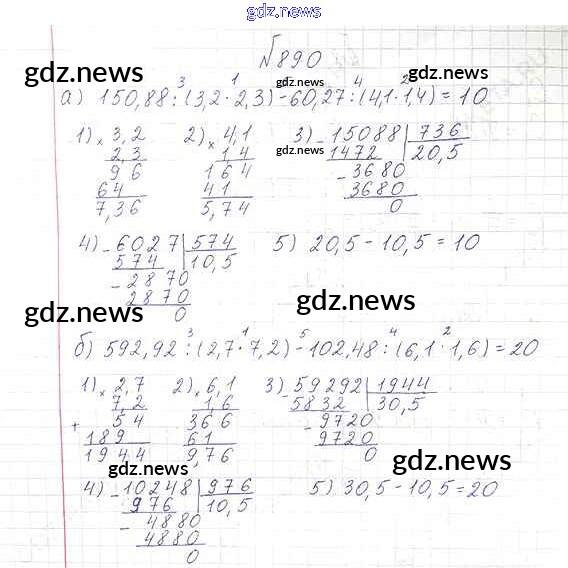 gdz.news
№890
gdz.news gdz.news gdz.news
а) 150,88 : (3,2 · 2,3) - 60,27 : (4,1 · 1,4) = 10
3 1 4 2
1) × 3,2 2) × 4,1 3) - 15088 | 736
2,3 1,4 gdz.news 1472 20,5
96 164 - 3680
64 41 3680
7,36 5,74 0
4) - 6027 | 574 5) 20,5 - 10,5 = 10
574 10,5
- 2870
2870
0
gdz.news gdz.news
б) 592,92 : (2,7 · 7,2) - 102,48 : (6,1 · 1,6) = 20
3 1 5 4 2
1) × 2,7 2) × 6,1 3) - 59292 | 1944
7,2 1,6 5832 30,5
+ 54 366 - 9720
189 61 9720
1944 9,76 0
gdz.news gdz.news
4) - 10248 | 976 5) 30,5 - 10,5 = 20
976 10,5
- 4880
4880
0